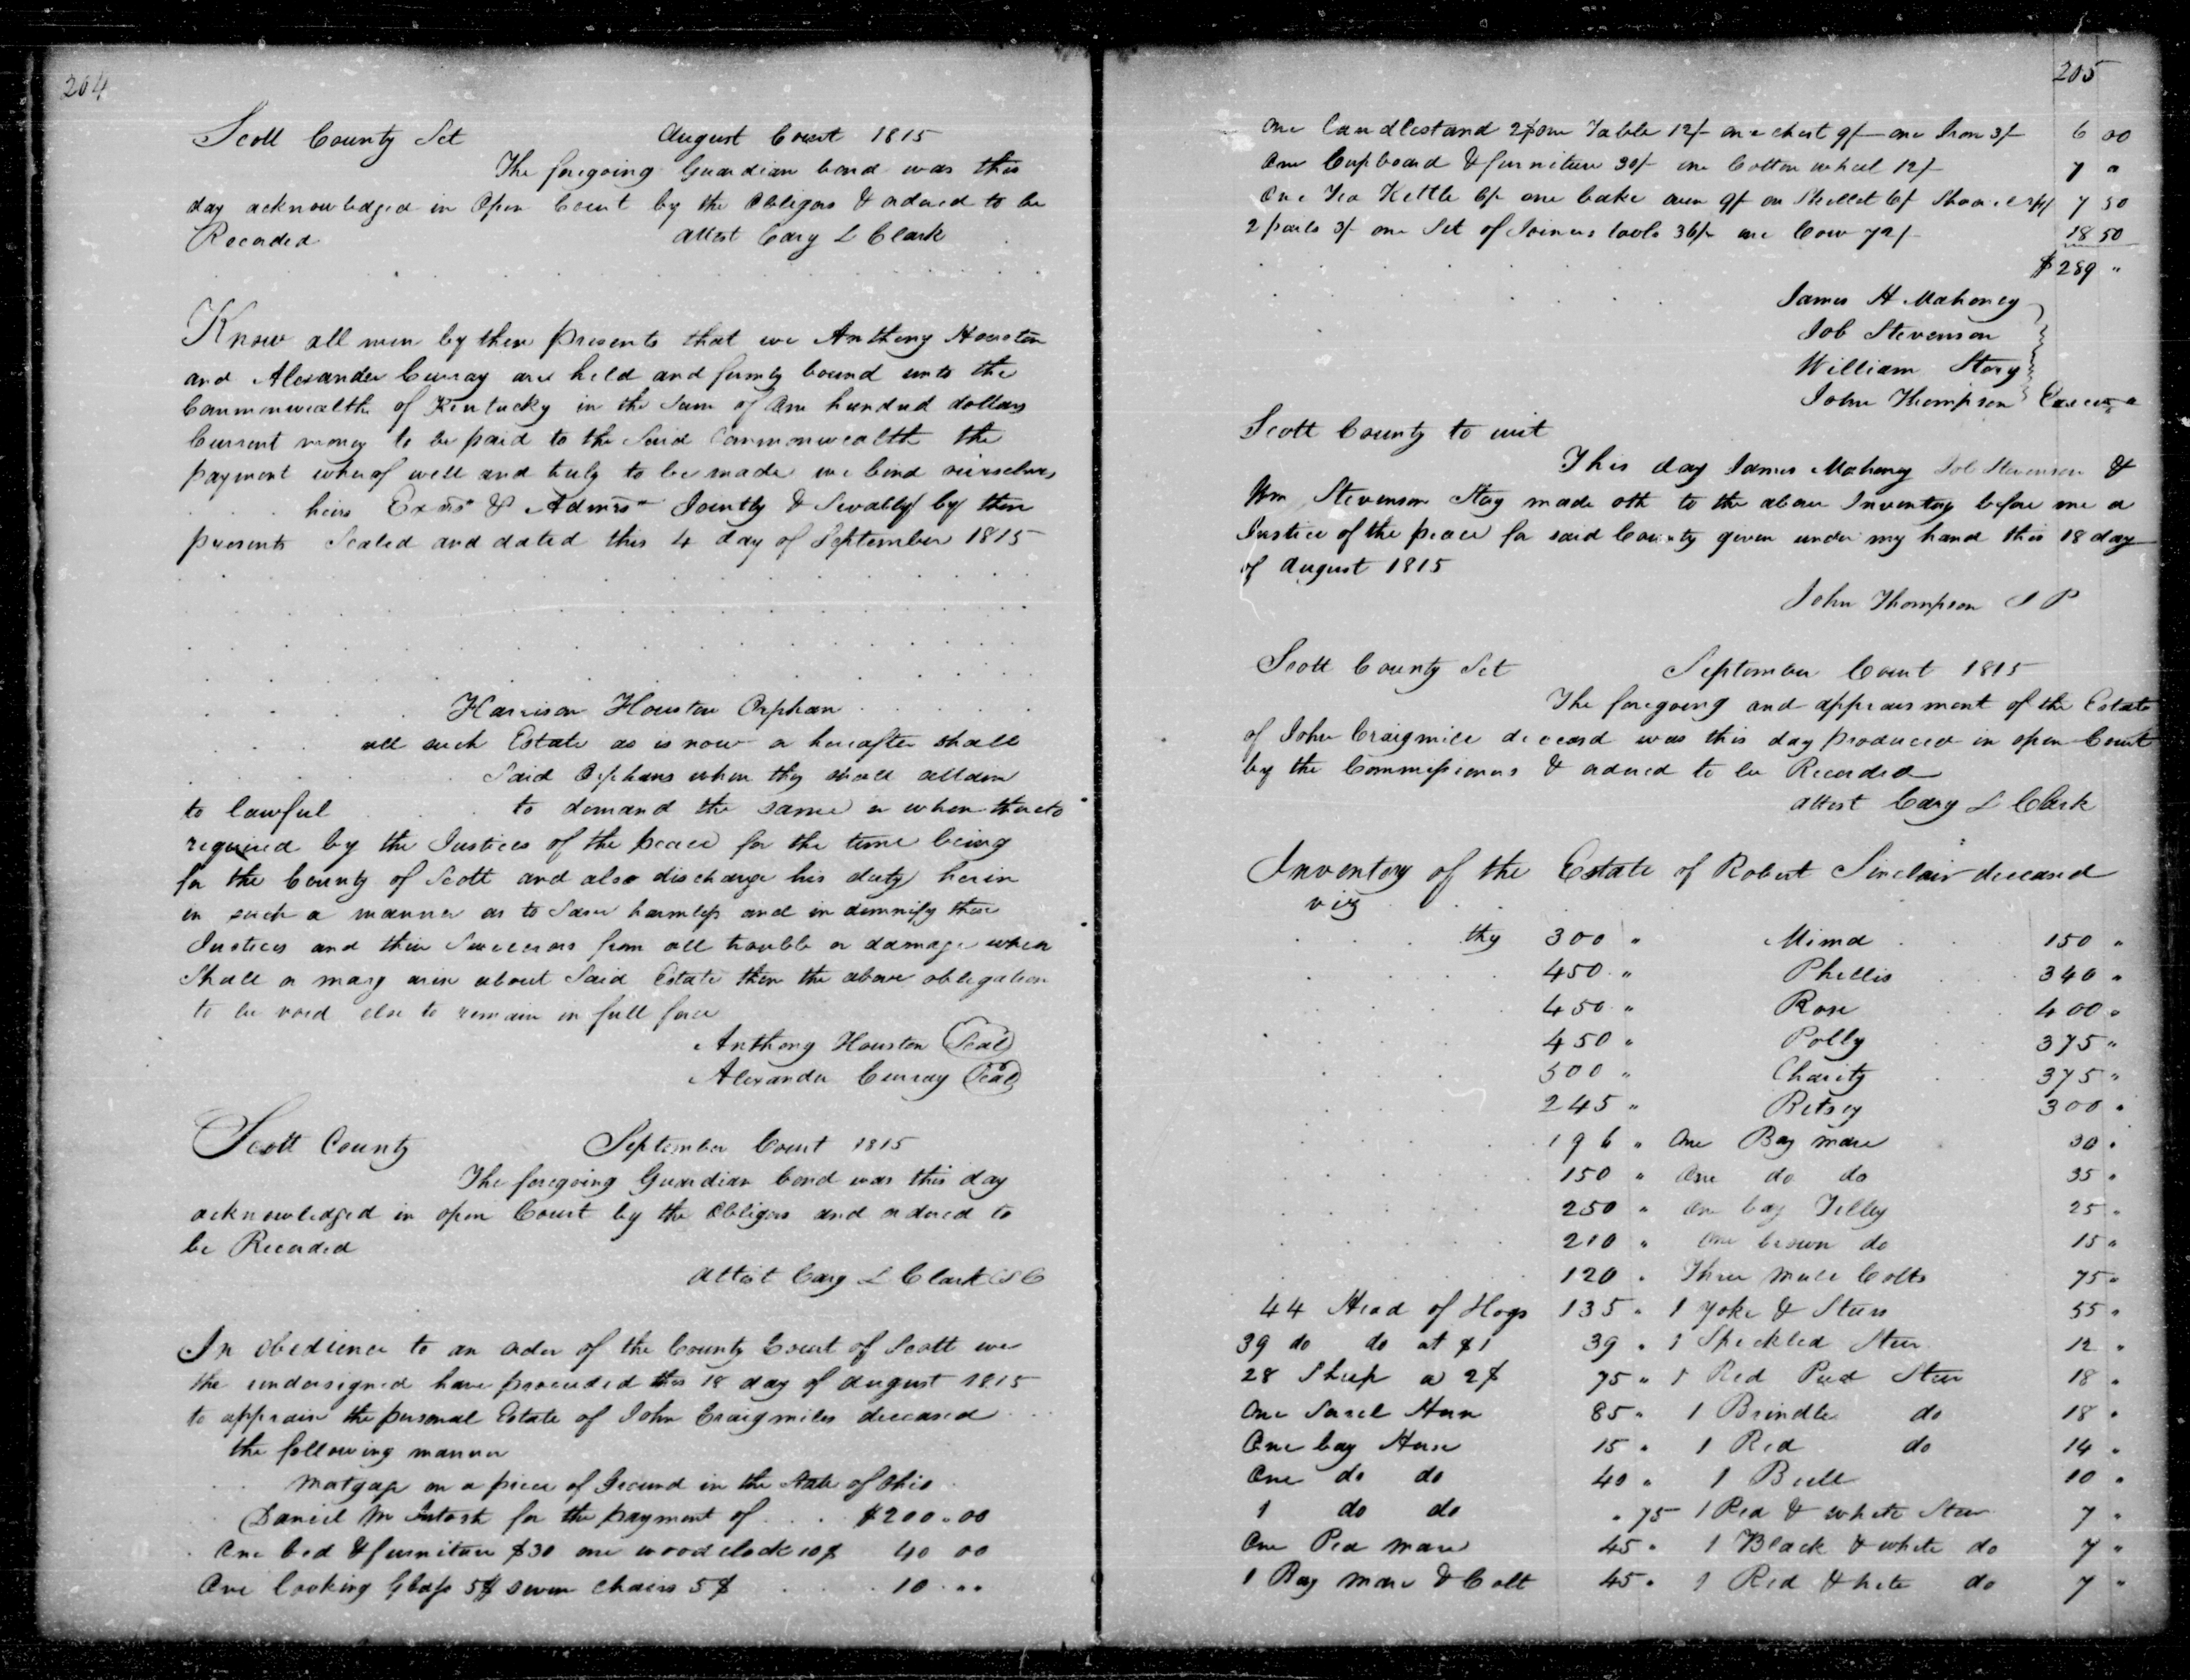 204
Scott County Sct August Court 1815
The foregoing Guardian bond was this
day acknowledged in Open Court by the Obligors & ordered to be
Recorded attest Cary L Clark
Know all men by these presents that we Anthony Houston
and Alexander Curray are held and firmly bound unto the
Commonwealth of Kentucky in the Sum of One hundred dollars
Current money to be paid to the Said Commonwealth the
payment wherof well and truly to be made we bind ourselves
heirs Exrs & Admrs Jointly & Sevally by these
presents Sealed and dated this 4 day of September 1815
Harrison Houston Orphan
all such Estate as is now or hereafter shall
Said Orphans when they shall attain
to lawful to demand the same or when thereto
required by the Justices of the peace for the time being
for the County of Scott and also discharge his duty herin
in such a manner as to Save harmless and indemnify these
Justices and their Successors from all trouble or damage when
Shall or may arise about Said Estate then the above obligation
to be void else to remain in full force
Anthony Houston Seal
Alexander Curray Seal
Scott County September Court 1815
The foregoing Guardian bond was this day
acknowledged in open Court by the Obligors and ordered to
be Recorded
Attest Cary L Clark CSC
In obedience to an order of the County Court of Scott we
the undersigned have proceeded this 18 day of August 1815
to appraise the personal Estate of John Craigmiles deceased
the following manner
Matgage on a piece of Ground in the State of Ohio
Daniel Mc Intosh for the payment of $200.00
One bed & furniture $30 one wood clock 10$ 40 00
One looking Glass 5$ seven chairs 5$ 10 "
205
One Candlestand 2$ one Table 12/- one chest 9/- one Iron 3/- 6 00
One Cupboard & furniture 30/- one Cotton wheel 12/- 7 "
One Tea Kettle 6/- one bake oven 9/- on Skillet 6/ Shovel 7 50
2 pails 3/- one Set of Joiners tools 36/- one Cow 72/- 18 50
$289 "
James H Mahoney
Job Stevenson
William Story
John Thompson
Scott County to wit
This day James Mahony Job Stevenson &
Wm Stevenson Stoy made oth to the above Inventory before me a
Justice of the peace for said County given under my hand this 18 day
of August 1815
John Thompson J P
Scott County Sct September Court 1815
The foregoing and appraisment of the Estate
of John Craigmile deceasd was this day produced in open Court
by the Commissioners & ordered to be Recorded
attest Cary L Clark
Inventory of the Estate of Robert Sinclair deceased
viz
thy 300 " Mima 150 "
450 " Phillis 340 "
450 " Rose 400 "
450 " Polly 375 "
500 " Charity 375 "
245 " Betsey 300 "
196 " One Bay mare 30 "
150 " One do do 35 "
250 " One bay Filley 25 "
210 " One brown do 15 "
120 " Three mule Colts 75 "
44 Head of Hogs 135 " 1 yoke & Steers 55 "
39 do do at $1 39 " 1 Speckled Steer 12 "
28 Sheep a 2$ 75 " 1 Red Pied Steer 18 "
One Sorel Horse 85 " 1 Brindle do 18 "
One bay Horse 15 " 1 Red do 14 "
One do do 40 " 1 Bull 10 "
1 do do " 75 1 Red & white Steer 7 "
One Red mare 45 " 1 Black & white do 7 "
1 Bay Mare & Colt 45 " 1 Red & hite do 7 "